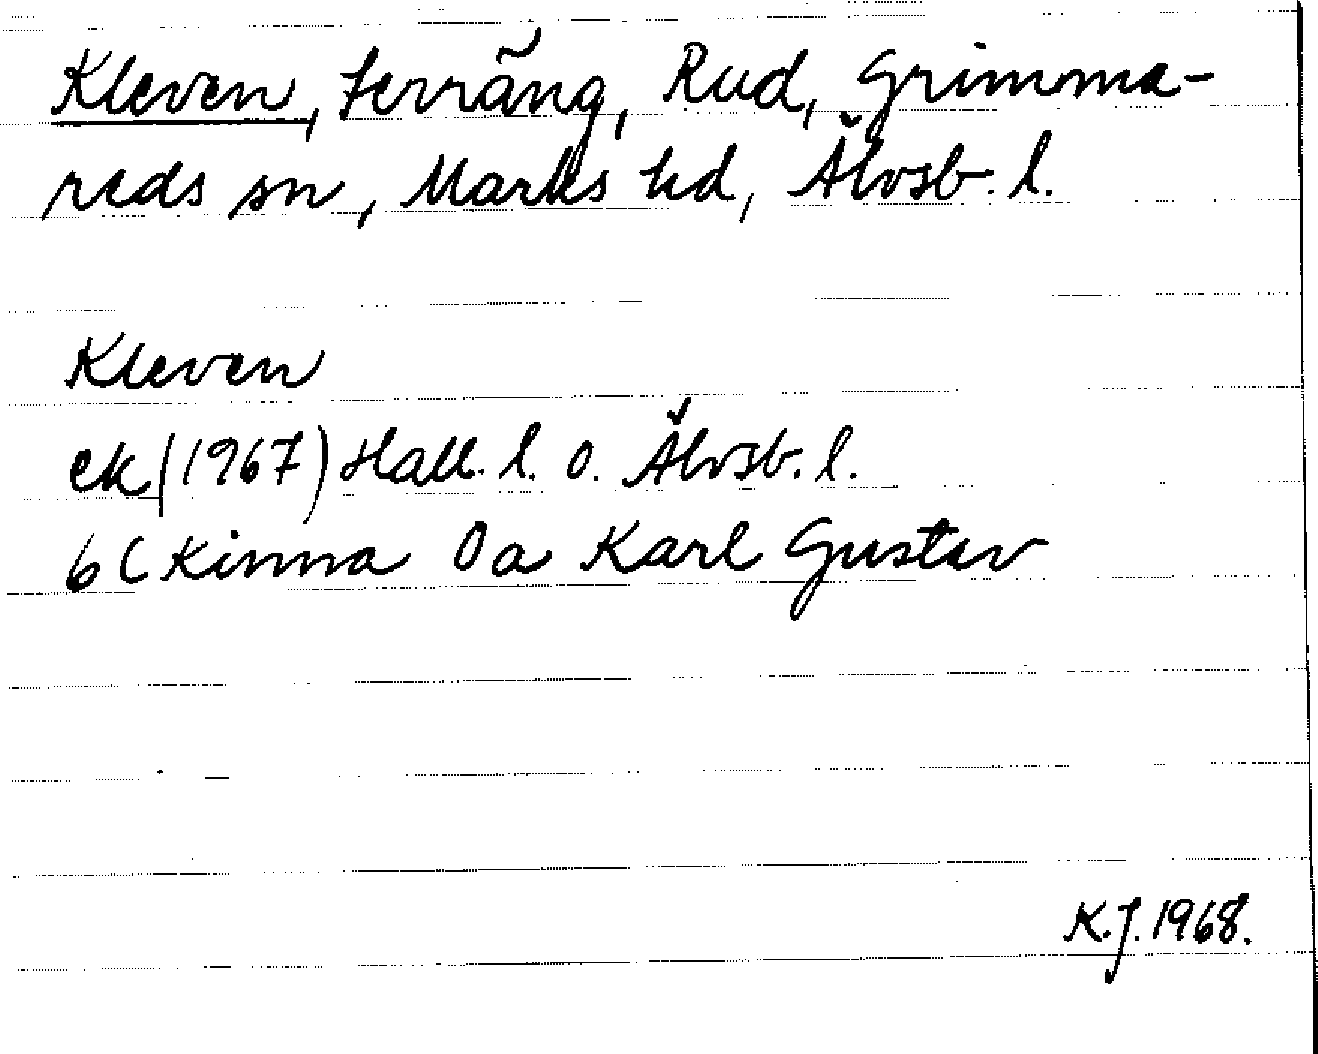 Kleven, terräng, Rud, Grimma-
reds sn, Marks hd, Älvsb. l.
Kleven
ek (1967) Hall. l. o. Älvsb. l.
6C Kinna 0a Karl Gustav
K.J. 1968.